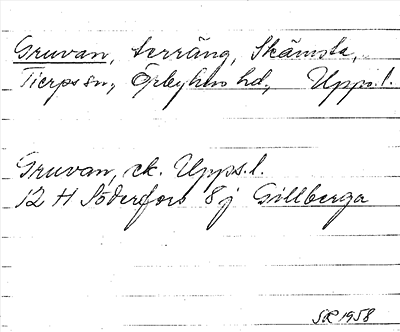 Gruvan, terräng, Skämsta,
Tierps sn, Örbyhus hd, Upps.l.
Gruvan, ek. Upps.l.
12 H Söderfors 8j Gillberga
SR 1958